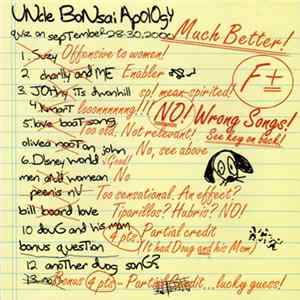 UNcle BoNsai ApolOgy
quiz on september 28.30.2000
Much Better!
F±
1. Suzy Offensive to women!
2 charlly and ME Enabler
3. JOHNy ITs downhill sp! mean-spirited!
4 Kmart looonnnnnng!!!
NO! Wrong Songs!
5. love boat song Too old. Not relevant!
See key on back!
olivea nooton john No, see above
6. Disney world √Good!
men and women No
peenis nV Too sensational. An effect?
bill board love Tiparillos? Hubris? NO!
10 doug and his mom 4 pts. Partial credit
bonus question (It had Doug and his Mom)
12 anoTher doug sonG?
Bonus 4 pts - Partial Credit...lucky guess!